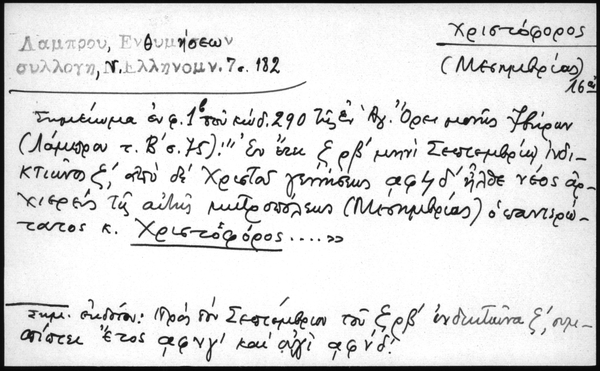 Λάμπρου, Ενθυμήσεων
συλλογή, Ν. Ελληνομν. 7 σ. 182
Χριστόφορος
(Μεσημβρίας)
16 αἰ
Σημείωμα ἐν φ. 1β τοῦ κώδ. 290 τῆς ἐν Ἁγ. Ὄρει μονῆς Ἰβήρων
(Λάμπρου τ. Β' σ. 75): "Ἐν ἔτει ζρβ' μηνὶ Σεπτεμβρίῳ, ἰνδι-
κτιῶνος ζ', ἀπὸ δὲ Χριστοῦ γεννήσεως αφϟδ' ἦλθε νέος ἀρ-
χιερεὺς τῆς αὐτῆς μητροπόλεως (Μεσημβρίας) ὁ πανιερώ-
τατος κ. Χριστόφορος ....»
Σημ. ἐκδότου: Πρὸς τὸν Σεπτέμβριον τοῦ ζρβ' ἰνδικτιῶνα ζ', συμ-
πίπτει ἔτος αφϟγ' καὶ οὐχὶ αφϟδ'.